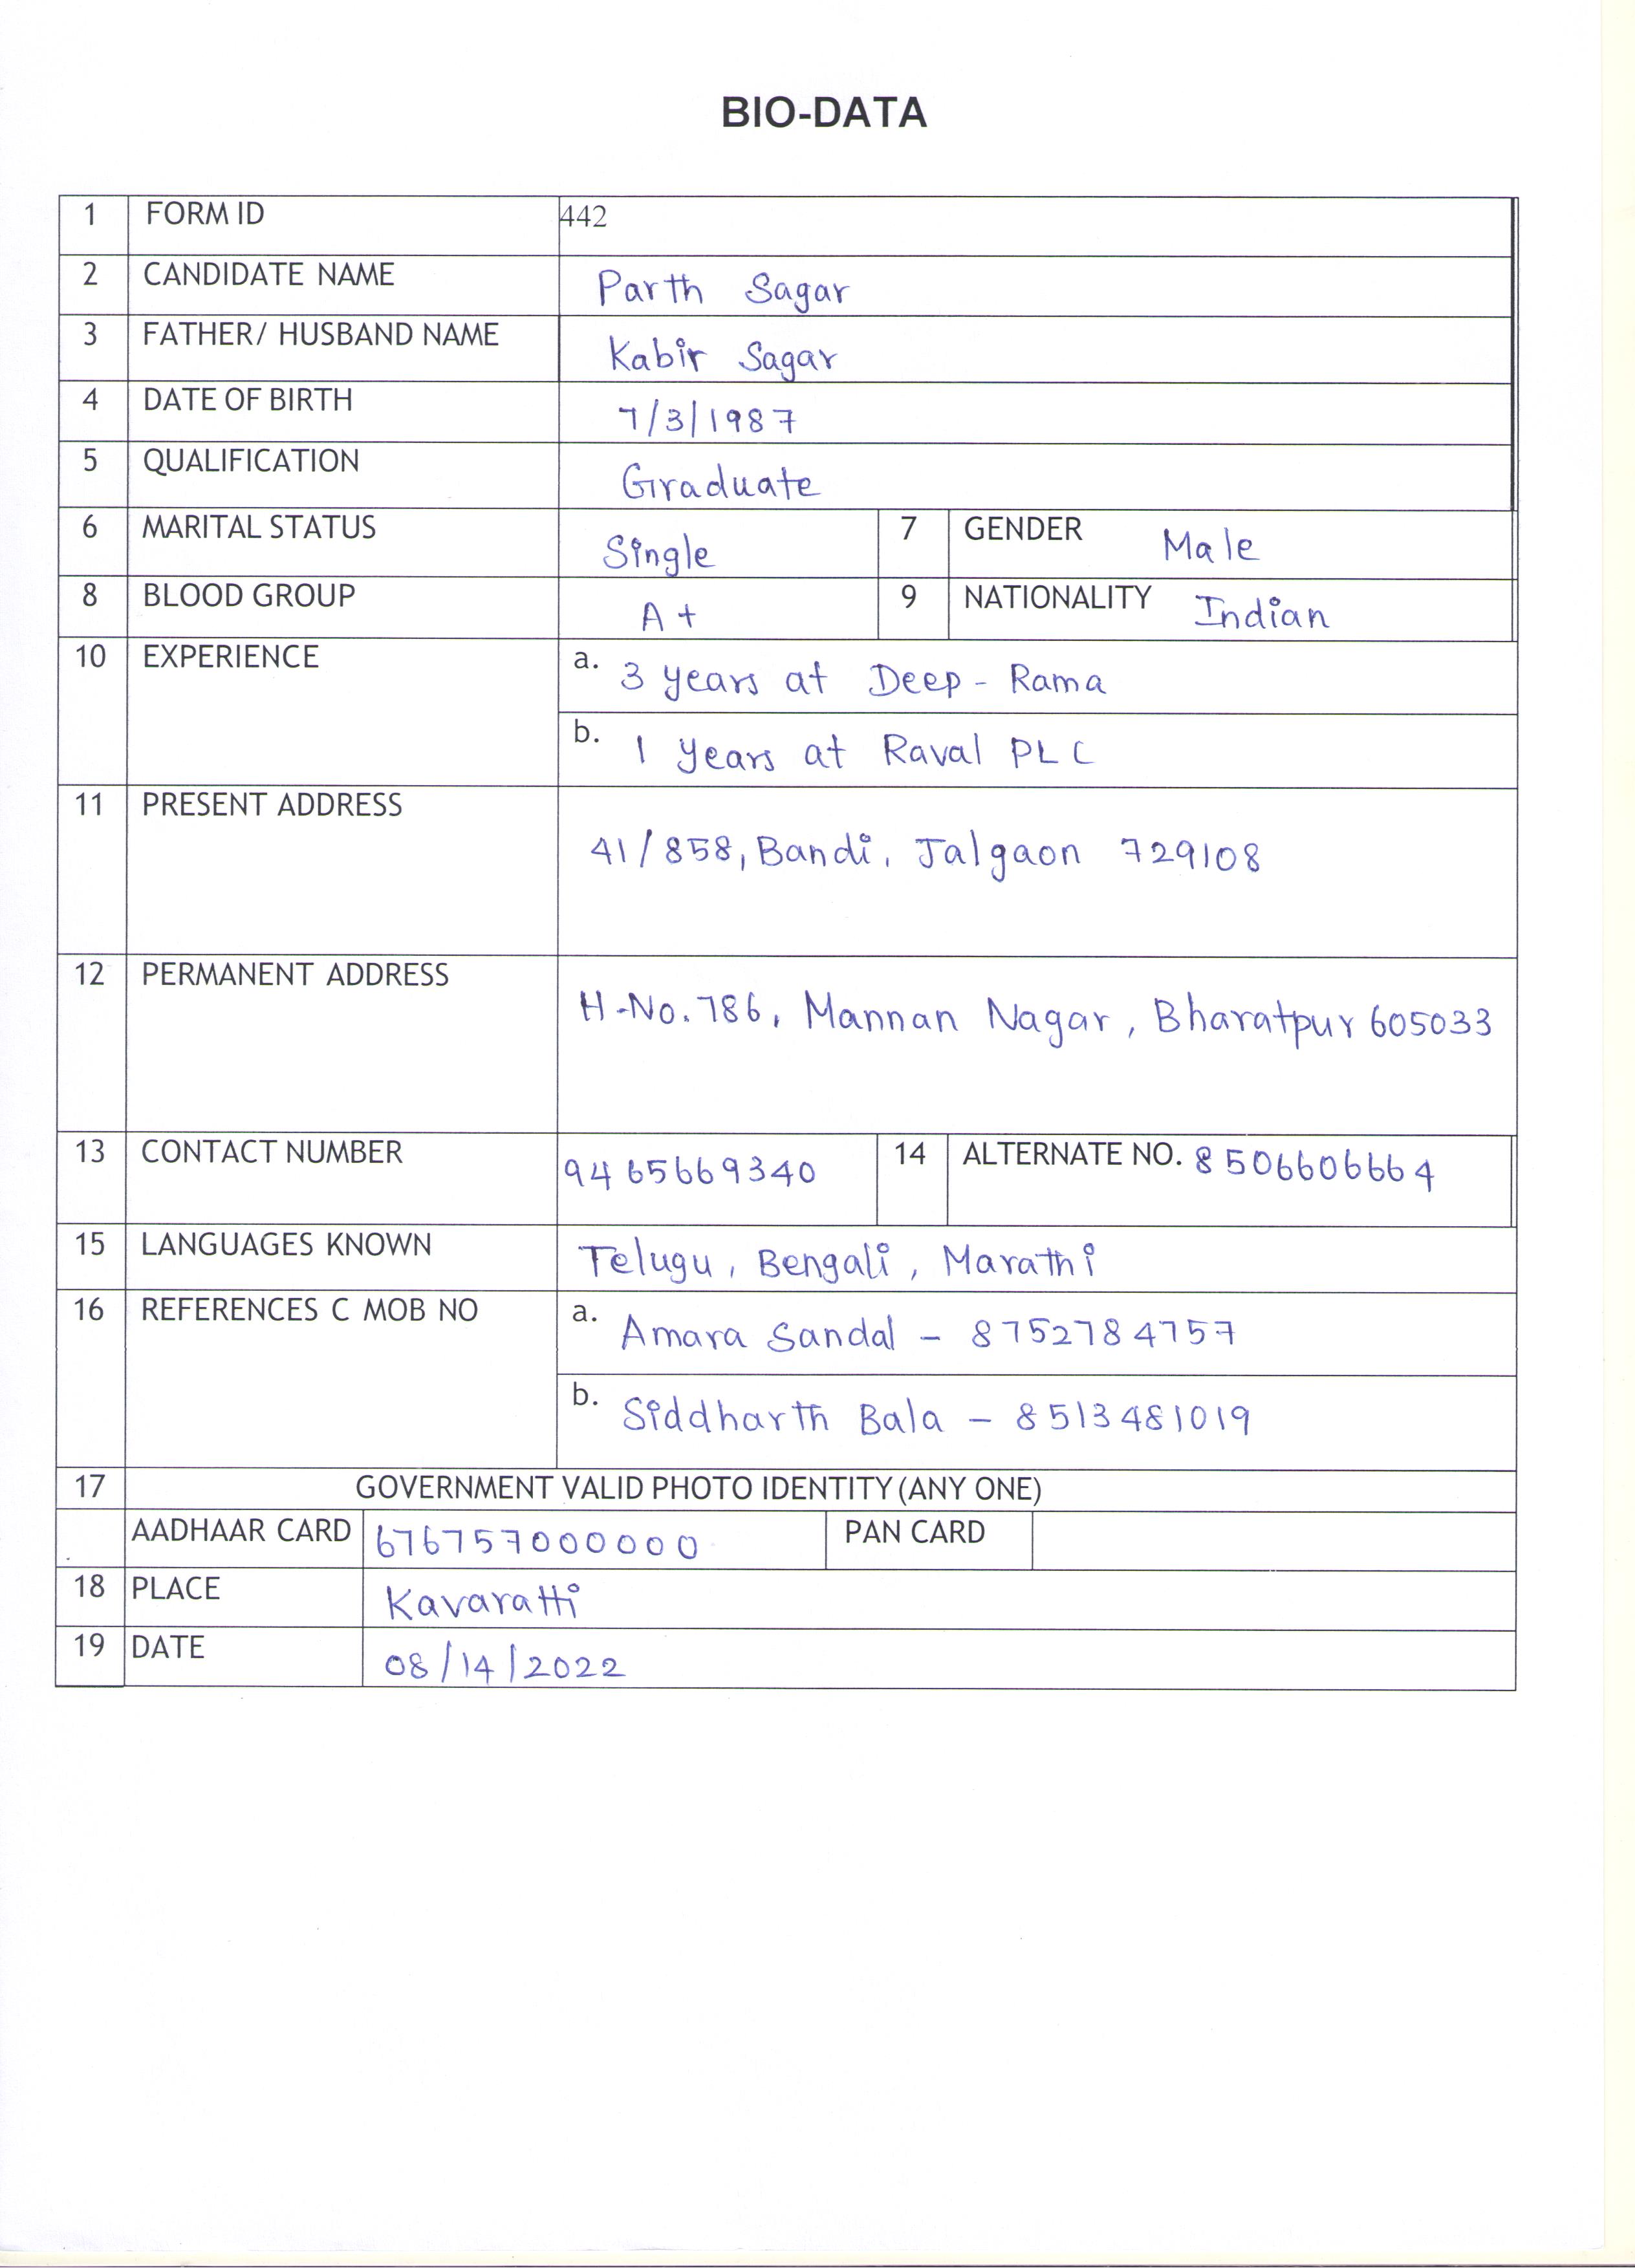 BIO-DATA
1 FORM ID 442
2 CANDIDATE NAME Parth Sagar
3 FATHER/ HUSBAND NAME Kabir Sagar
4 DATE OF BIRTH 7/3/1987
5 QUALIFICATION Graduate
6 MARITAL STATUS Single 7 GENDER Male
8 BLOOD GROUP A+ 9 NATIONALITY Indian
10 EXPERIENCE a. 3 years at Deep-Rama
b. 1 years at Raval PLC
11 PRESENT ADDRESS
41/858, Bandi, Jalgaon 729108
12 PERMANENT ADDRESS
H.No. 786, Mannan Nagar, Bharatpur 605033
13 CONTACT NUMBER 9465669340 14 ALTERNATE NO. 8506606664
15 LANGUAGES KNOWN Telugu, Bengali, Marathi
16 REFERENCES C MOB NO a. Amara Sandal - 8752784757
b. Siddharth Bala - 8513481019
17 GOVERNMENT VALID PHOTO IDENTITY (ANY ONE)
AADHAAR CARD 676757000000 PAN CARD
18 PLACE Kavaratti
19 DATE 08/14/2022